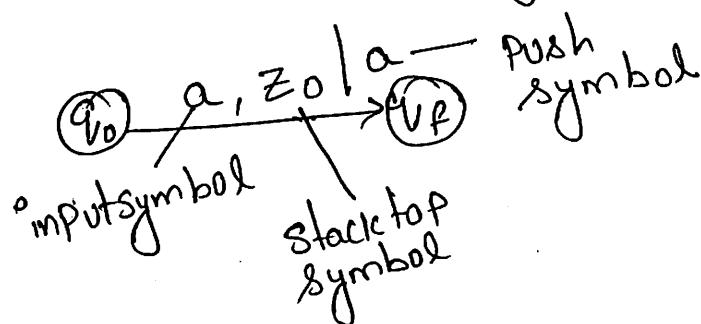 a, z0 / a — push
symbol
q0 → qf
inputsymbol
stack top
symbol